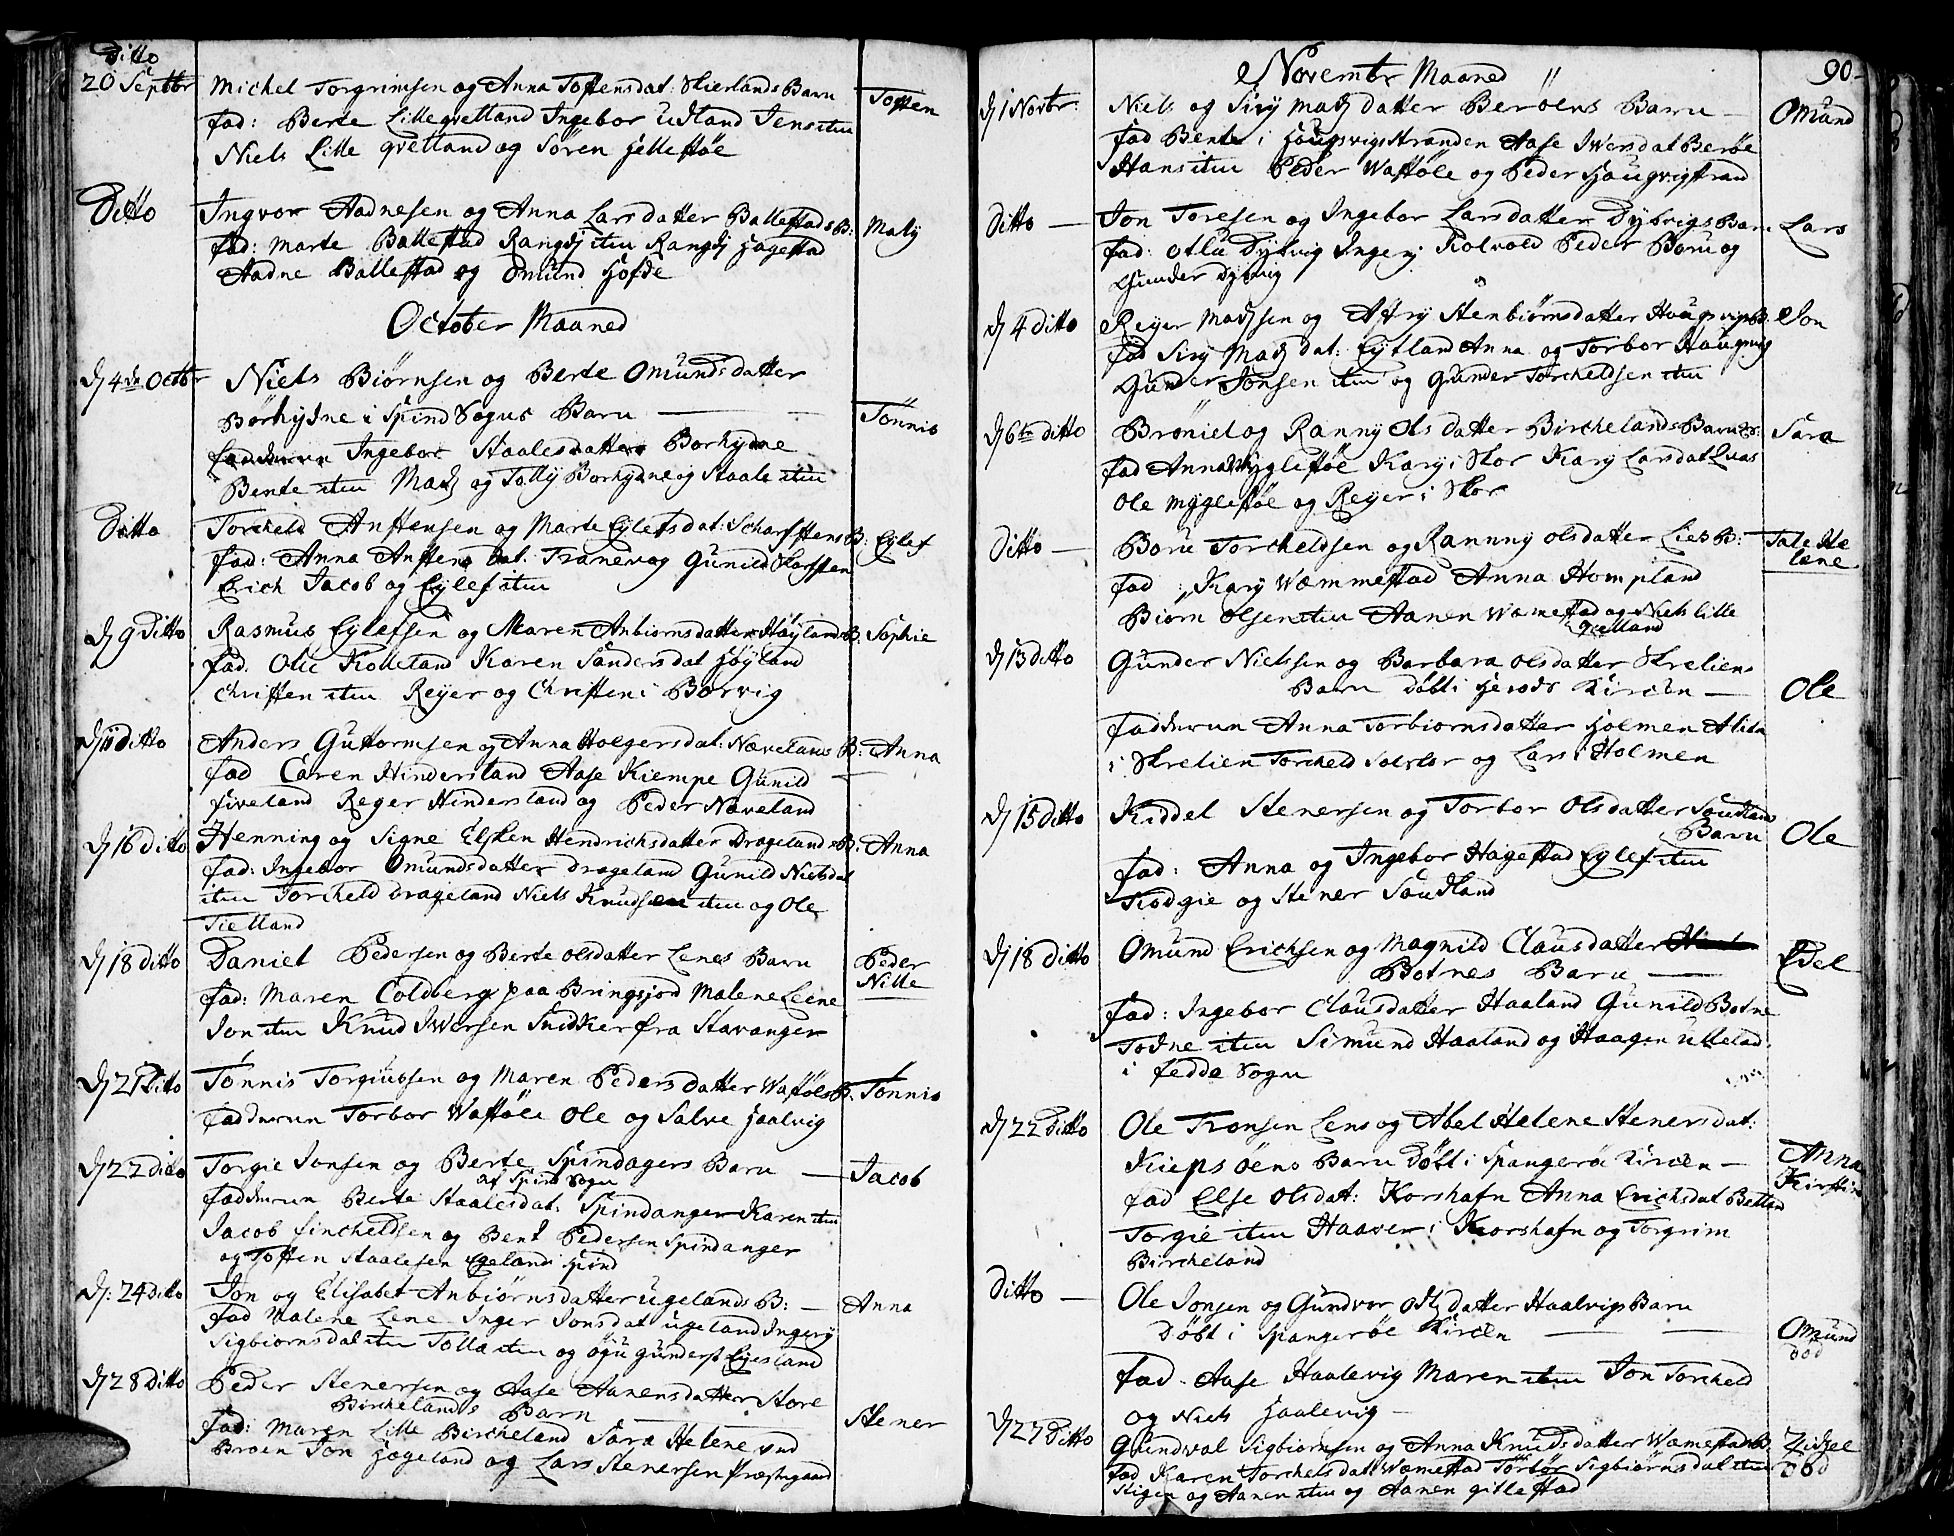 Ditto
20 Septbr Michel Torgrimsen og Anna Toftensdat: Skierlands Barn Tosten
fad: Berte Lillegvelland Ingebor Udland Jens item
Niels Lille qvelland og Sören Hellestöe
Ditto Ingvor Aadnesen og Anna Larsdatter Ballestads B: Maly
fad: Marte Ballestad Rangdj item Rangdj Hagestad
Aadne Ballestad og Omund Hofde
October Maaned
dj 4de Octbr Niels Biörnsen og Berte Omundsdatter
Börhydne i Spind Sogns Barn — Tönnis
fadderne Ingebor Staalesdatter Borhydne
Bente item Madz og Tolly Borhydne og Staale item
Ditto Torcheld Anstensen og Marte Eylefsdat: Scharstens B: Eylef
fad: Anna Anstens dat. Tranevog Gunild Skarsten
Erich Jacob og Eylef item
dj 9 Ditto Rasmus Eylefsen og Maren Anbiornsdatter Höylands B. Sophie
fad. Olie Kolleland Karen Sandersdat Höyland
Christen item Reyer og Christen i Borvig
dj 11 ditto Anders Guttormsen og Anna Holgersdat: Nævelands B: Anna
fad Caren Hindersland Aase Kiempe Gunild
fiveland Reger Hindersland og Peder Næveland
dj 16 ditto Henning og Signe Elsken Hendrichsdatter Dragelands B: Anna
fad: Ingebor Omundsdatter drageland Gunild Nielsdat
item Torcheld Drageland Niels Knudsen item og Ole
Tielland
dj 18 ditto Daniel Pedersen og Berte Olsdatter Lenes Barn Peder
Nille
fad: Maren Coldberg paa Bringsjord Malene Leene
Jon item Knud Iwersen Snidker fra Stavanger
dj 21 Ditto Tönnis Torgiussen og Maren Pedersdatter Waststöls B. Tönnis
fadderne Torbor Waststöle Ole og Salve Haalvig
dj 22 ditto Torgie Jonsen og Berte Spindagers Barn — Jacob
af Spind Sogn
fadderne Berte Staalesdat: Spindanger Karen item
Jacob fincheldsen og Bent Pedersen Spindanger
og Tosten Staalesen Egeland i Spind
dj: 24 ditto Jon og Elisabet Anbiörnsdatter Ugelands B: — Anna
fad Malene Lene Inger Jonsdat Ugeland Ingery
Sigbiornsdat item Tolla item og Ogu gunders: Eyesland
dj 28 Ditto Peder Stenersen og Aase Aanensdatter Store
Birchelands Barn Stener
fad: Maren Lille Bircheland Sara Helene ved
Broen Jon Hageland og Lars Stenersen Præstegaard
Novembr Maaned 90
dj 1 Novbr: Niels og Siry Madz datter Beröens Barn — Omund
fad Bente i Haugvigs Stranden Aase Iwersdat Beröe
Hans item Peder Waststöle og Peder Haugvigstrand
Ditto — Jon Toresen og Ingebor Larsdatter Dybvigs Barn Lars
fad: Olla Dybvig Ingerj Rolvold Peder Boru og
Gunder Dybvig
dj 4 ditto Reyer Madzsen og Astry Stenbiörnsdatter Haugvigs B: Jon
fad Siry Madz dat: Eytland Anna og Torbor Haugvig
Gunder Jonsen item og Gunder Torcheldsen item
dj 6te ditto Bröniel og Ranny Olsdatter Birchelands Barn: Sara
fad Anna Myglestöe Kary i Skor Kary Larsdat Lvas
Ole Myglestöe og Reyer i Skor
Ditto — Boru Torcheldsen og Rannny Olsdatter Lies B: Tale He
lene
fad: Kary Wæmmestad Anna Hompland
Biörn Olsen item Aanen Wæmestad og Niels lille
qvelland
dj 13 ditto Gunder Nielssen og Barbara Olsdatter Skreliens
Barn döbt i Herods Kircken — Ole
fadderne Anna Torbiornsdatter Holmen Alida
i Skrelien Torcheld Solstor og Lars i Holmen
dj 15 ditto Kiddel Stenersen og Torbor Olsdatter Saudlands
Barn Ole
fad: Anna og Ingebor Hagestad Eylef item
Kodgie og Stener Saudland
dj 18 ditto Omund Erichsen og Magnild Clausdatter
Botnes Barn — Edel
fad: Ingebor Clausdatter Haaland Gunild Botne
Todne item Simund Haaland og Haagen Ulleland
i fedde Sogn
dj 22 Ditto Ole Tronsen Lens og Abel Helene Stenersdat:
Kieps öens Barn Döbt i Spangerö Kircken — Anna
Kirstin
fad Else Olsdat: Korshafn Anna Erichsdat Batland
Torgie item Haaver i Korshafn og Torgrim
Bircheland
Ditto — Ole Jonsen og Gundvor Olsdatter Haalvigs Barn
Döbt i Spangeröe Kircken — Omund
död
fad. Aase Haalevig Maren item Jon Torcheld
og Niels Haalevig —
dj 27 Ditto Gundval Sigbiornsen og Anna Knudsdatter Wæmestads B. Zidzel
död
fad Karen Torchelsdat Wæmestad Törbör Sigbiörnsdat item
Stigen og Aanen item og Aanen gitlestad